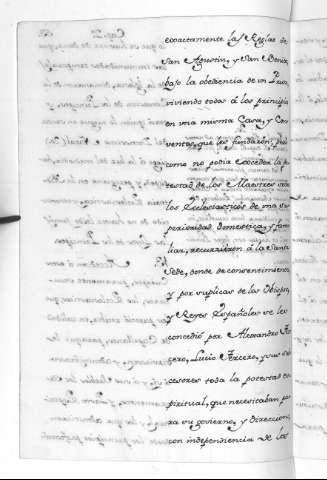 exactamente las Reglas de
San Agustin, y San Benito
bajo la obediencia de un Prior,
viviendo todos á los principios
en una misma Casa, y Con
ventos, que les fundaron, pero
como no podia exceder la po
testad de los Maestres
los Eclesiasticos de una su
perioridad domestica, y fami
liar, recurrieron á la Santa
Sede, donde de consentimiento,
y por suplicas de los Obispos,
y Reyes Españoles se les
concedió por Alexandro Ter
cero, Lucio Tercero, y sus su
cesores toda la potestad es
piritual, que necesitaban pa
ra su govierno, y direccion
con independencia de los